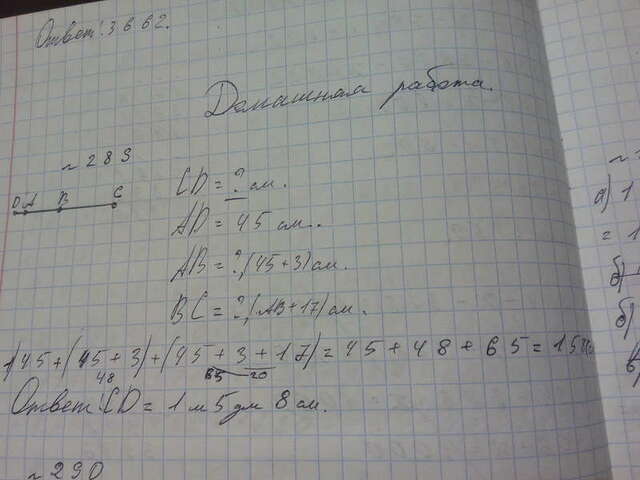 Ответ: 3 6 6 2.
Домашная работа.
~ 2 8 9
D A B C
CD = ? см.
AD = 45 см.
AB = ?, (45 + 3) см.
BC = ?, (AB + 17) см.
1) 45 + (45 + 3) + (45 + 3 + 17) = 45 + 48 + 65 = 158
48 65 20
Ответ: CD = 1 м 5 дм 8 см.
~ 290
а) 1
= 1
б)
б)
в)